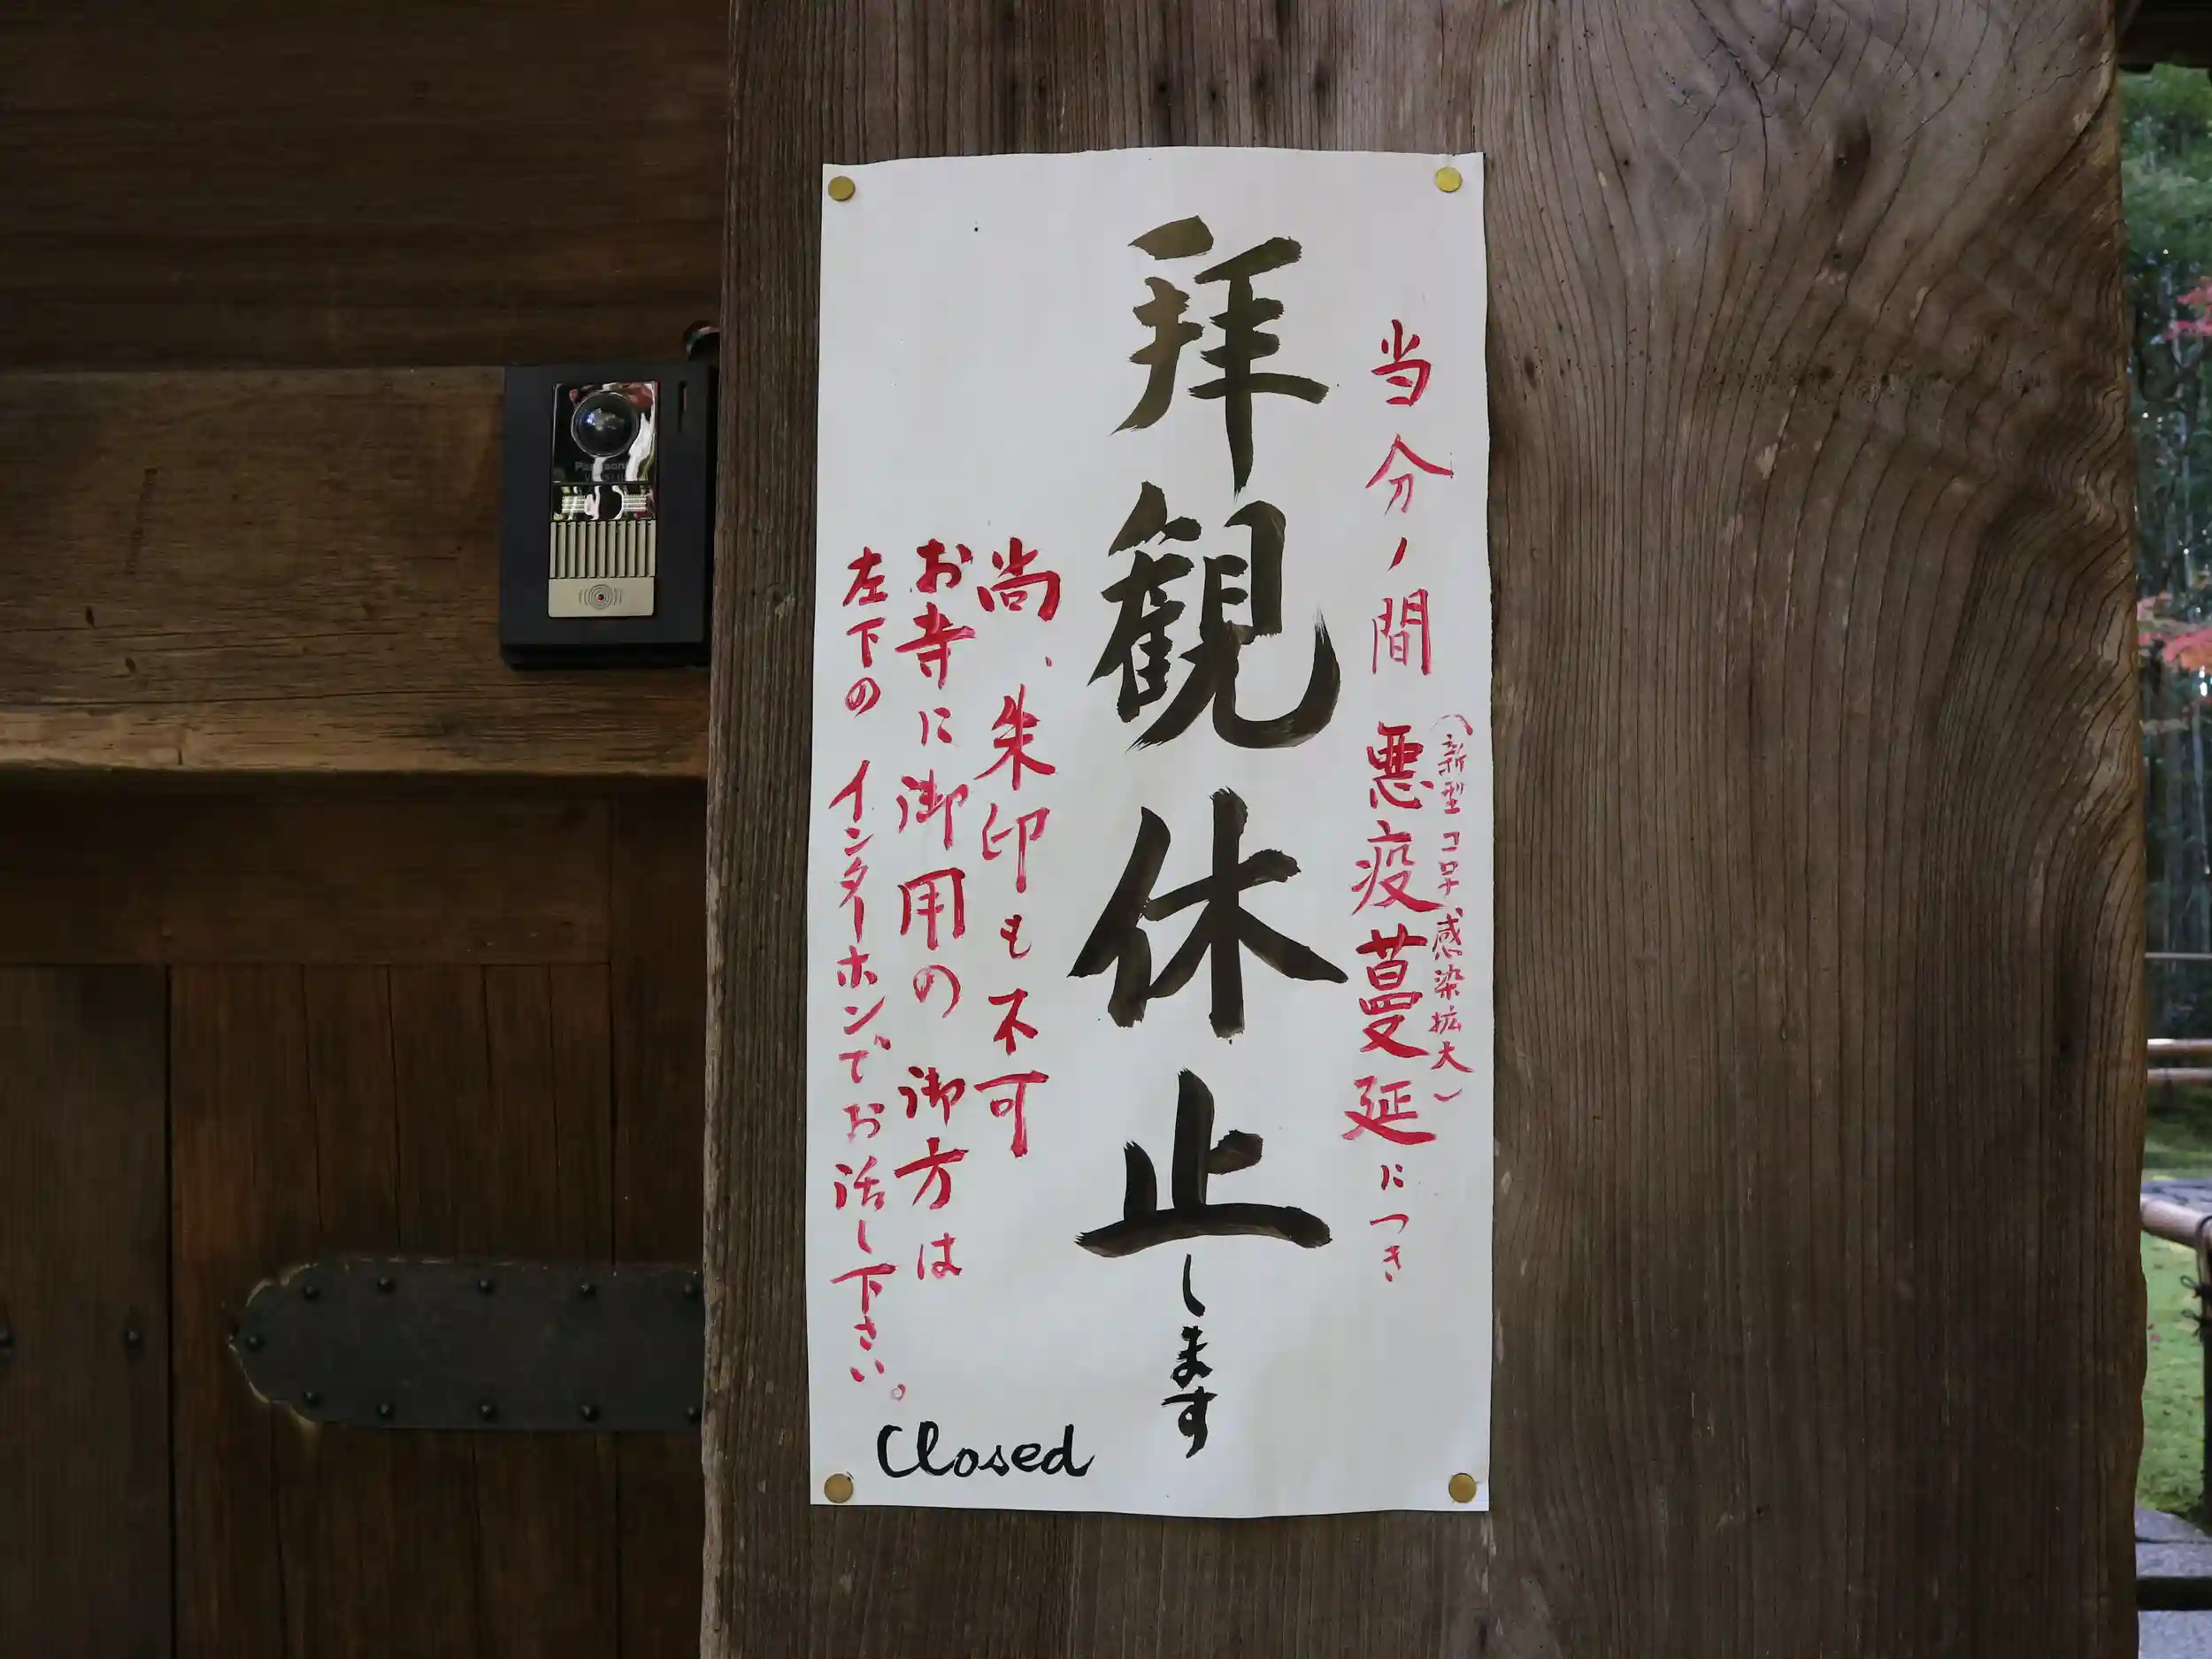 (新型コロナ感染拡大)
当分ノ間 悪疫蔓延につき
拝観休止します
尚、朱印も不可
お寺に御用の御方は
左下のインターホンでお話し下さい。
Closed
Panasonic